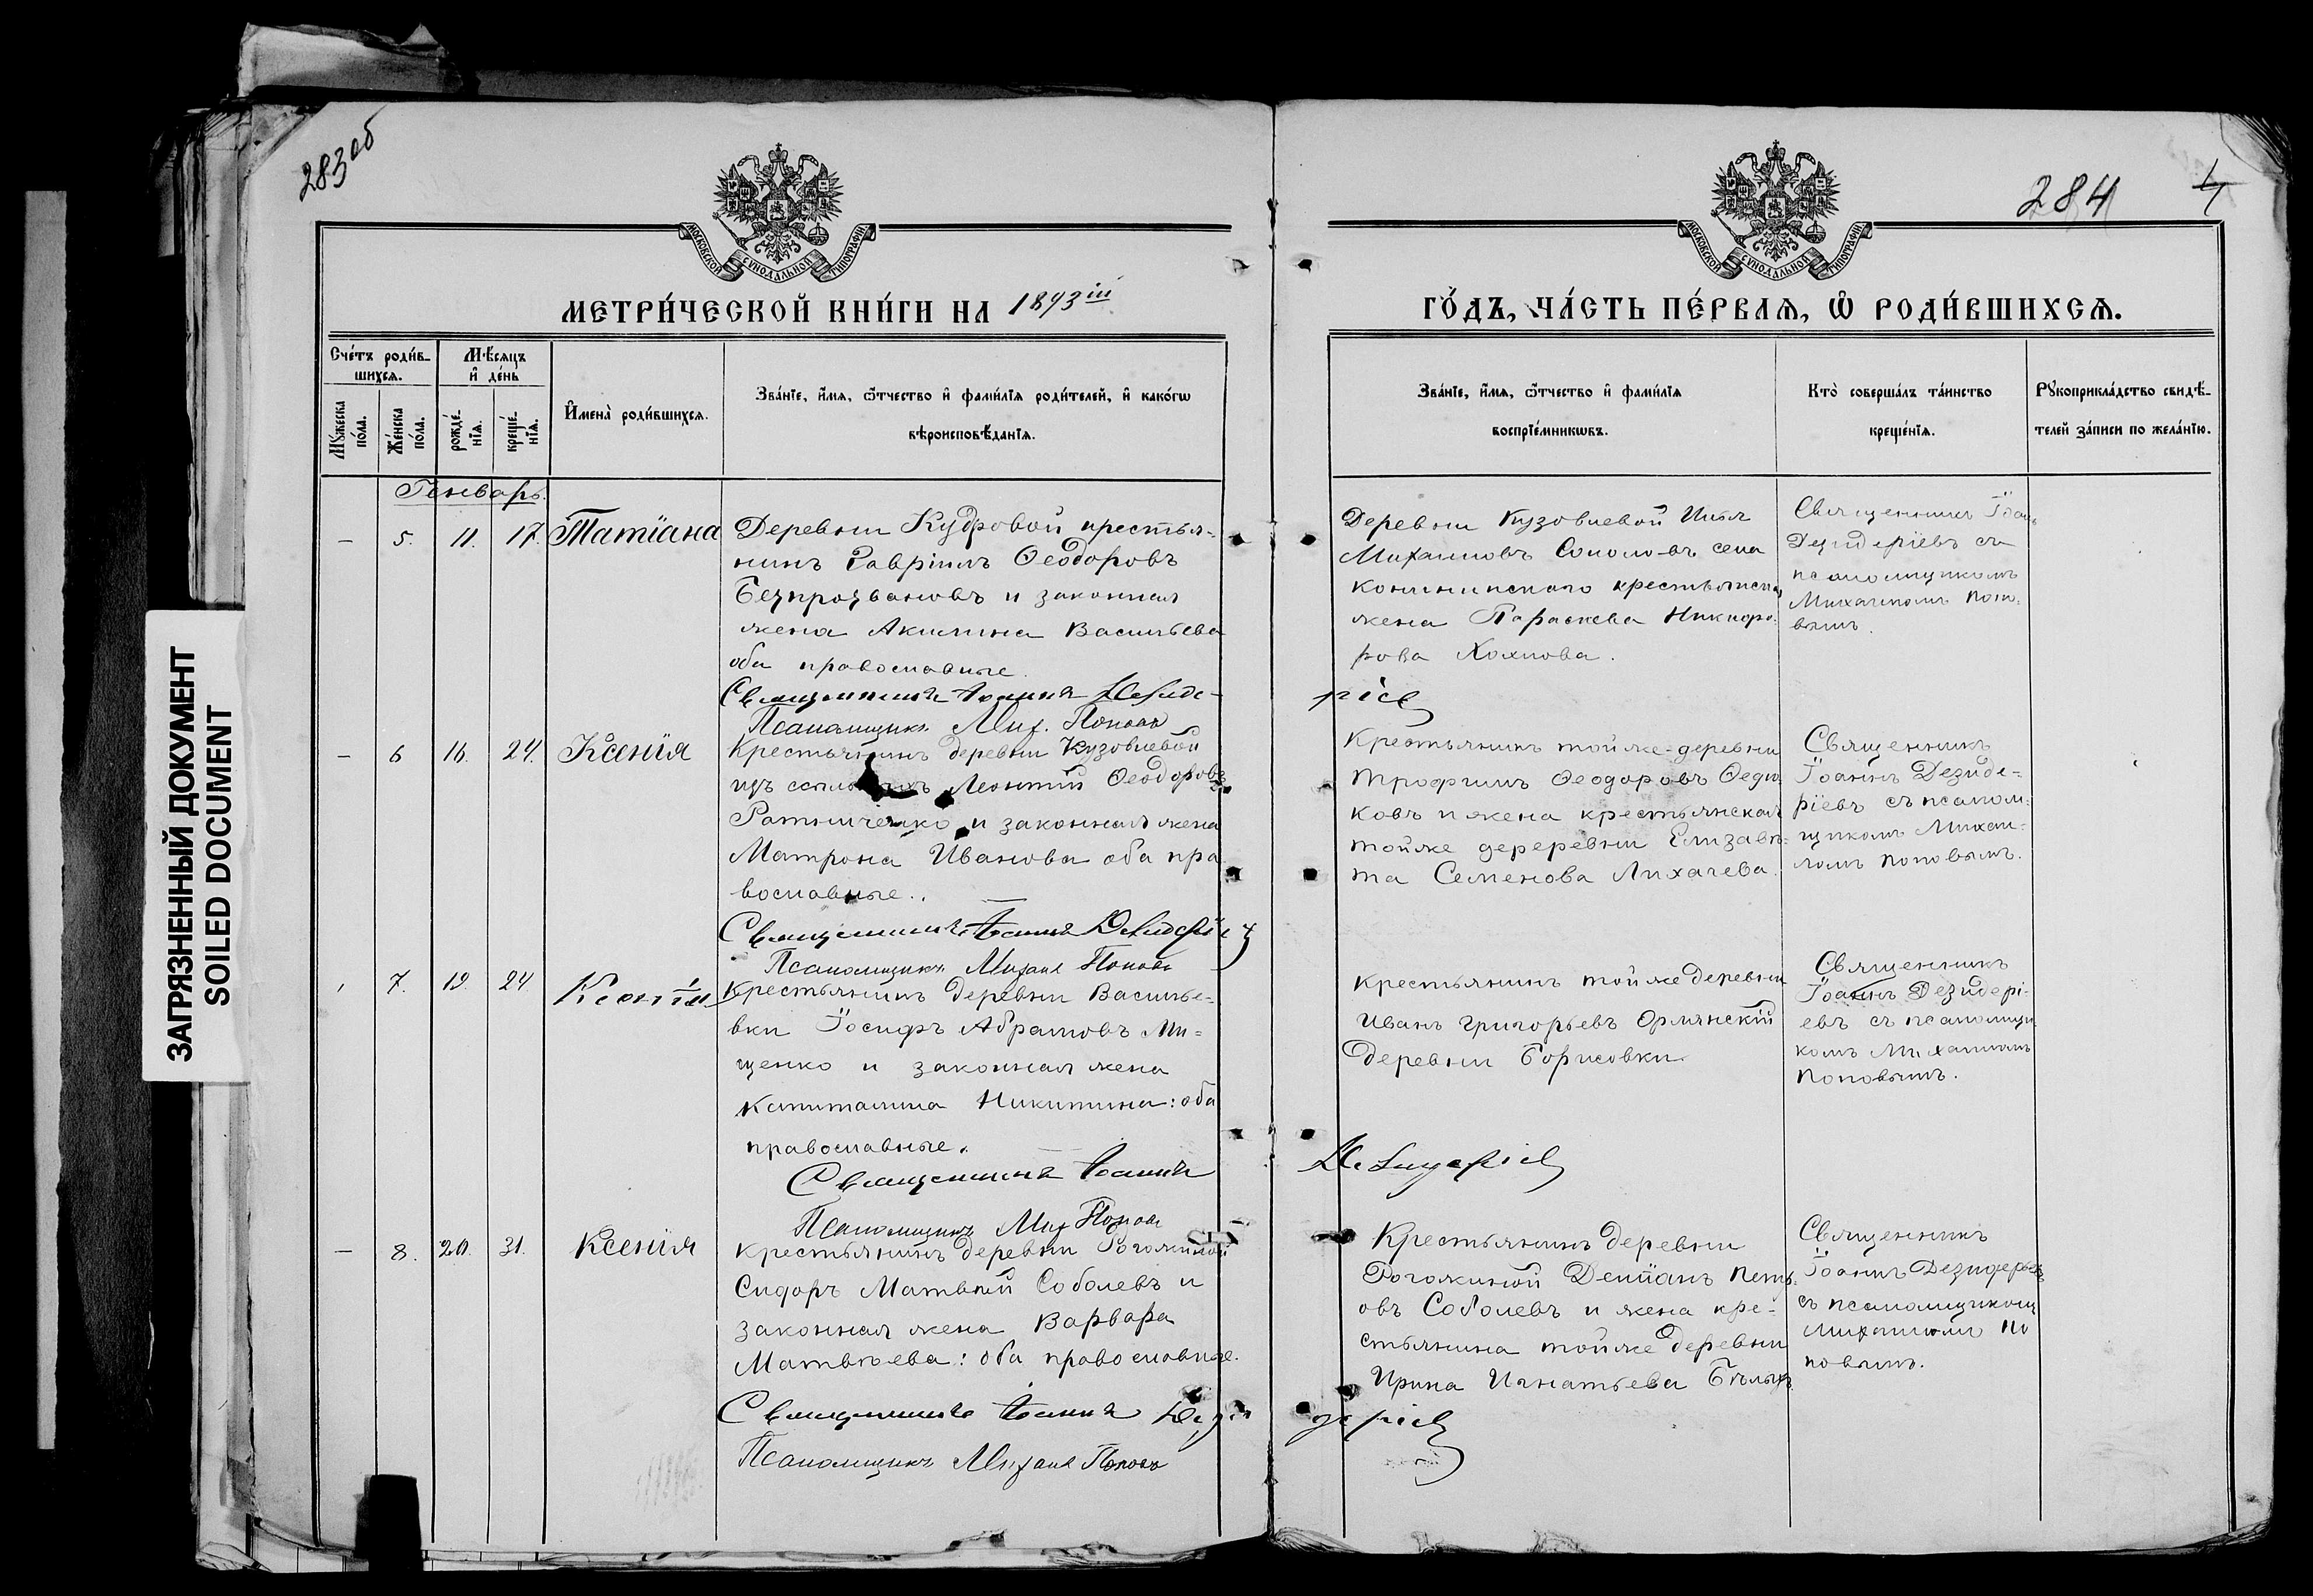 283 об
284
4
ЗАГРЯЗНЕННЫЙ ДОКУМЕНТ
SOILED DOCUMENT
МОСКОВСКОЙ СУНОДАЛЬНОЙ ТИПОГРАФІИ
МЕТРИ́ЧЕСКОЙ КНИ́ГИ НА 1893 ій
Сче́тъ роди́в-
шихсѧ.
Мꙋжеска
по́ла.
Же́нска
по́ла.
Мѣ́сѧцъ
и҆ де́нь
рожде́-
нїѧ.
креще́-
нїѧ.
И҆мена̀ роди́вшихсѧ.
Зва́нїе, и҆́мѧ, ѻ҆́тчество и҆ фами́лїѧ роди́телей, и҆ како́гѡ
вѣроисповѣ́данїѧ.
Генварь.
— 5. 11. 17. Татіана
Деревни Кудровой крестья-
нинъ Гавріилъ Ѳеодоровъ
Безпрозвановъ и законная
жена Акилина Васильева
оба православные.
Священникъ Іоаннъ Дезиде-
Псаломщикъ Мих. Поповъ
— 6 16. 24. Ксенія
Крестьянинъ деревни Кузовлевой
изъ Леонтій Ѳеодоровъ
и законная жена
Матрона Иванова оба пра
вославные.
Священникъ Іоаннъ Дезидеріев
Псаломщикъ Михаил Поповъ
7. 19. 24 Ксенія
Крестьянинъ деревни Василье-
вки Іосифъ Абрамовъ Ми-
щенко и законная жена
Капиталина Никитина: оба
православные.
Священникъ Іоаннъ
Псаломщикъ Мих Поповъ
— 8. 20. 31. Ксенія
Крестьянинъ деревни Рогожиной
Сидоръ Матвѣй Соболевъ и
законная жена Варвара
Матвѣева: оба православные.
Священникъ Іоаннъ Дези
Псаломщикъ Михаил Поповъ
МОСКОВСКОЙ СУНОДАЛЬНОЙ ТИПОГРАФІИ
ГО́ДЪ, ЧА́СТЬ ПЕ́РВАѦ, Ѡ҆ РОДИ́ВШИХСѦ.
Зва́нїе, и҆́мѧ, ѻ҆́тчество и҆ фами́лїѧ
воспрїе́мникѡвъ.
Кто̀ соверша́лъ та́инство
креще́нїѧ.
Рꙋкоприкла́дство свидѣ́-
телей за́писи по жела́нїю.
Деревни Кузовлевой Илья
Михаиловъ Соколовъ села
крестьянска
жена Параскева Никифо-
рова Хохлова.
ріев
Священникъ Іоанъ
Дезидеріевъ съ
псаломщикомъ
Михаиломъ Попо-
вымъ.
Крестьянинъ той же деревни
Трофимъ Ѳеодоровъ
ковъ и жена крестьянская
той же дереревни Елизаве-
та Семенова Лихачева.
Священникъ
Іоаннъ Дезиде-
ріевъ съ псалом-
щикомъ Михаи-
ломъ Поповымъ.
Крестьянинъ той же деревни
Иванъ Григорьевъ Орлянскій
деревни Борисовки.
Дезидеріев
Священникъ
Іоаннъ Дезидері-
евъ съ псаломщи
комъ Михаиломъ
Поповымъ.
Крестьянинъ деревни
Рогожиной Деміанъ Петр-
овъ Соболевъ и жена кре-
стьянина той же деревни
Ирина Игнатьева
деріев
Священникъ
Іоаннъ Дезидеріевъ
съ псаломщикомъ
Михаиломъ По
повымъ.